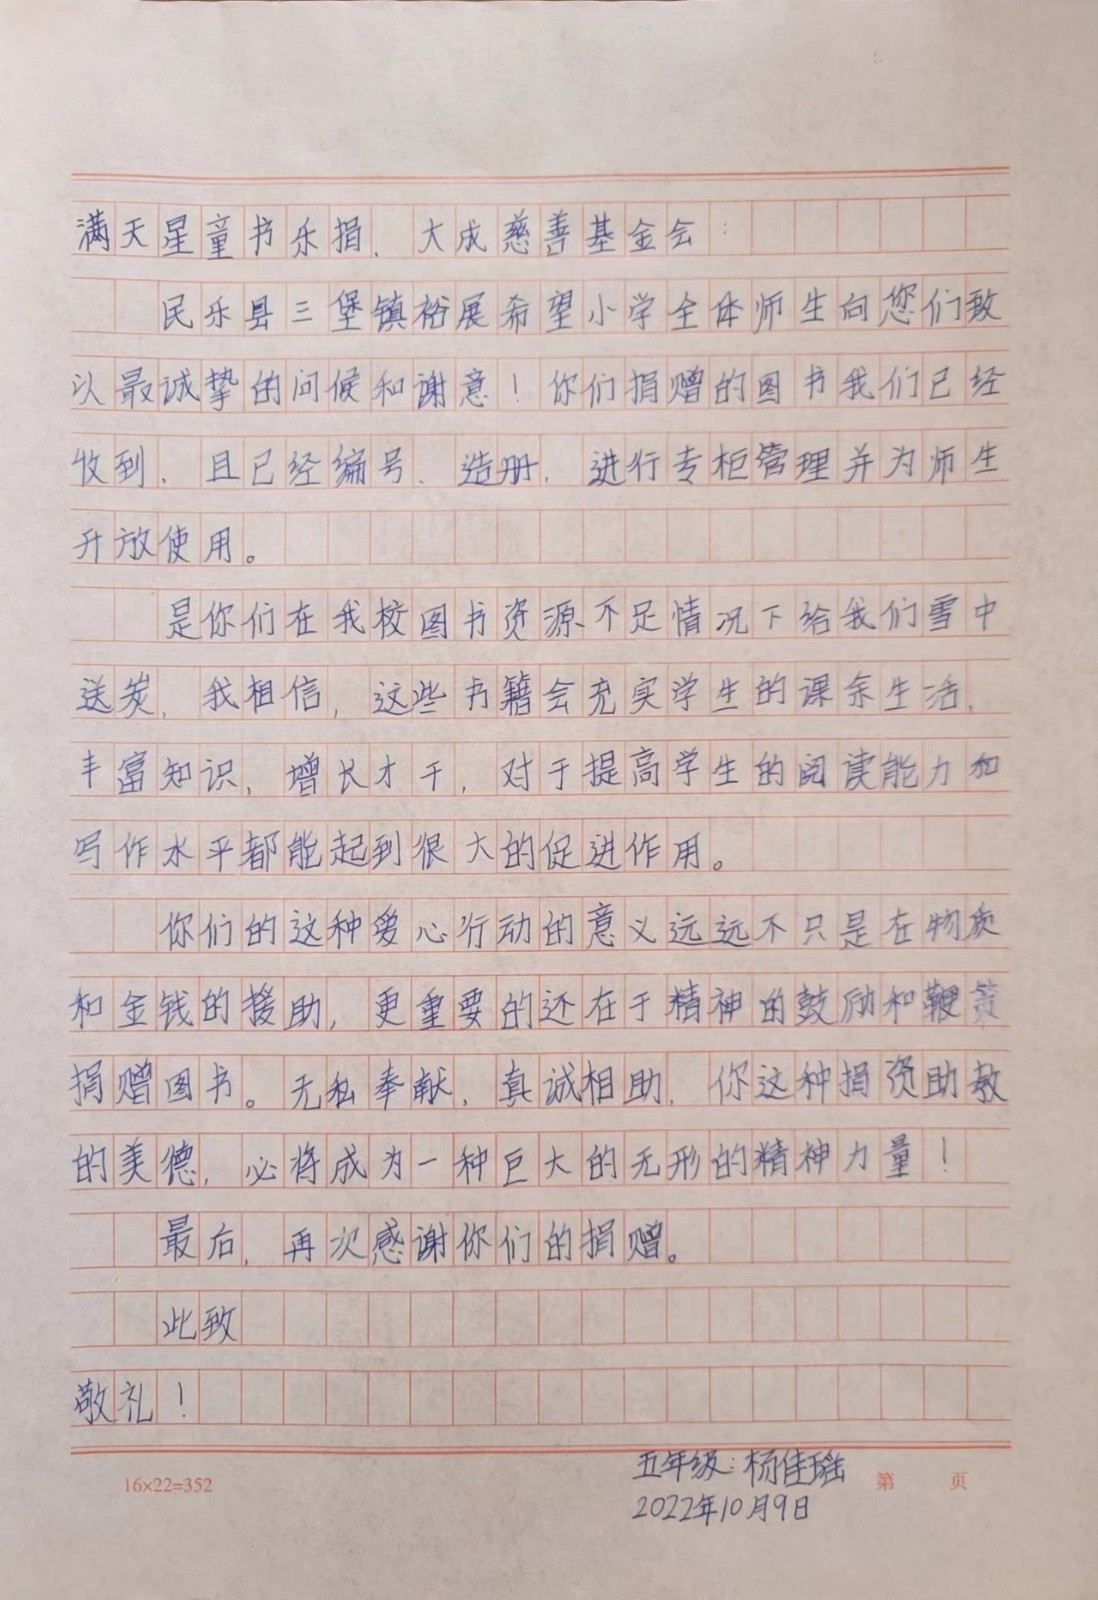 满天星童书乐捐、大成慈善基金会：
民乐县三堡镇裕展希望小学全体师生向您们致
以最诚挚的问候和谢意！你们捐赠的图书我们已经
收到，且已经编号、造册，进行专柜管理并为师生
开放使用。
是你们在我校图书资源不足情况下给我们雪中
送炭，我相信，这些书籍会充实学生的课余生活，
丰富知识，增长才干，对于提高学生的阅读能力和
写作水平都能起到很大的促进作用。
你们的这种爱心行动的意义远远不只是在物质
和金钱的援助，更重要的还在于精神的鼓励和鞭
捐赠图书。无私奉献，真诚相助，你这种捐资助教
的美德，必将成为一种巨大的无形的精神力量！
最后，再次感谢你们的捐赠。
此致
敬礼！
五年级：杨佳瑶
2022年10月9日
16×22=352
第 页